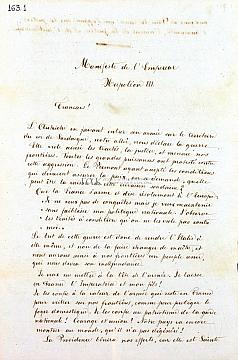 163.1
Manifeste de l'Empereur
Napoléon III.
Français!
L'Autriche en faisant entrer son armée sur le territoire
du roi de Sardaigne, notre allié, nous déclare la guerre.
Elle viole ainsi les traités, la justice, et menace nos
frontières. Toutes les grandes puissances ont protesté contre
cette aggression. Le Piémont ayant accepté les conditions
qui devaient assurer la paix, on se demande, quelle
peut être la raison de cette invasion soudaine?
Que la France s'arme, et dise résolument à l'Europe:
Je ne veux pas de conquêtes mais je veux maintenir
sans faiblesse ma politique nationale. J'observe
les traités à condition qu'on ne les viole pas contre
moi.
Le but de cette guerre est donc de rendre l'Italie à
elle même, et non de la faire changer de maître, et
nous aurons ainsi à nos frontières un peuple ami,
qui nous devra son indépendance.
Je vais me mettre à la tête de l'armée. Je laisse
en France l'Impératrice et mon fils!
Je les confie à la valeur de l'armée qui reste en France
pour veiller sur nos frontières, comme pour protéger le
foyer domestique. Je les confie au patriotisme de la garde
nationale! Courage et union! Notre pays va encore
montrer au monde, qu'il n'a pas dégénéré!
La Providence bénira nos efforts, car elle est Sainte